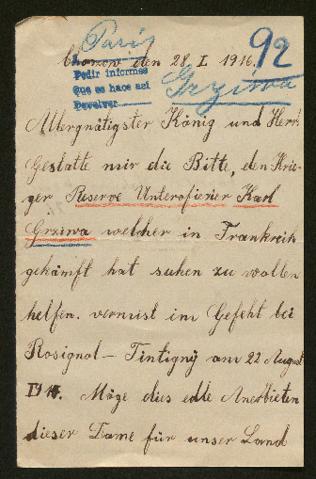 Paris
Chorzow den 28. I. 1916.
92
Pedir informes
Que se hace así
Devolver
Grziwa
Allergnätigster König und Herr
Gestatte mir die Bitte, den Krie-
ger Reserve Unterofizier Karl
Grziwa welcher in Frankreih
gekämft hat suhen zu wollen
helfen. vermist im Gefeht bei
Rosignol – Tintignÿ am 22 August
1914. Möge dies edle Anerbieten
dieser Dame für unser Land